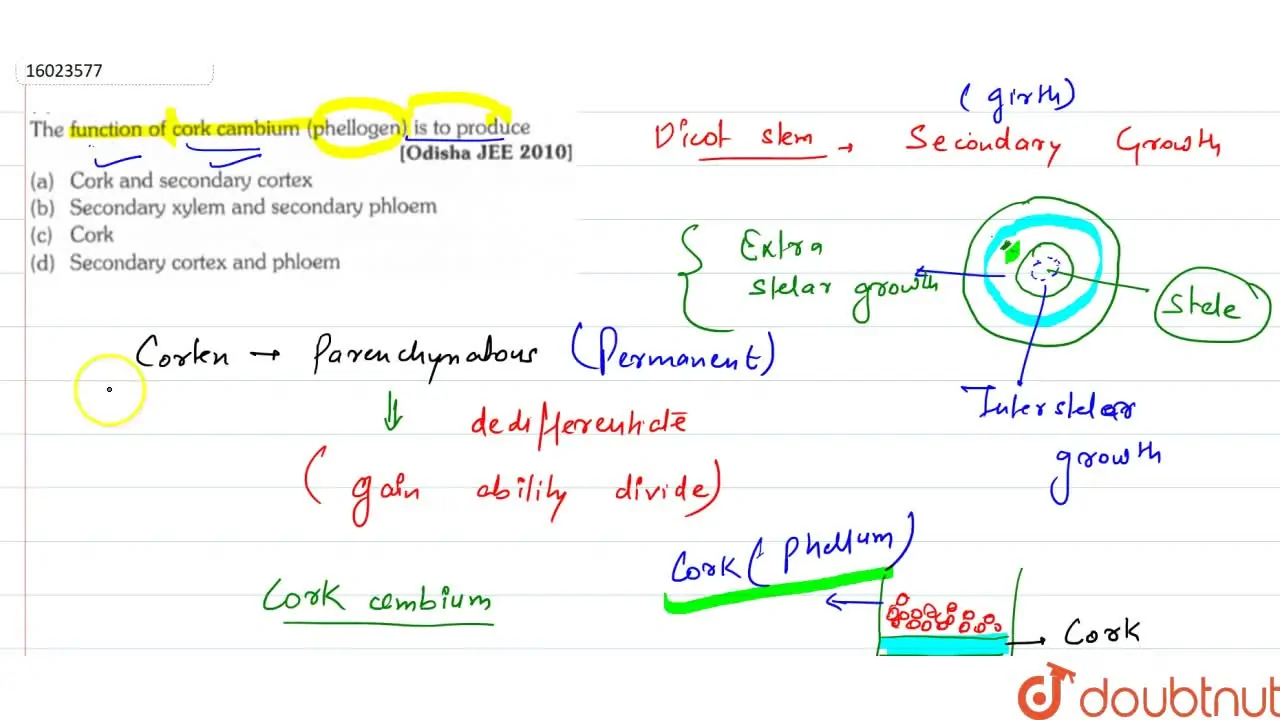 16023577
The function of cork cambium (phellogen) is to produce
[Odisha JEE 2010]
(a) Cork and secondary cortex
(b) Secondary xylem and secondary phloem
(c) Cork
(d) Secondary cortex and phloem
(girth)
Dicot stem → Secondary Growth
Extra
stelar growth
Stele
Interstelar
growth
Corten → Parenchymatous (Permanent)
dedifferentiate
(gain ability divide)
Cork cambium
Cork (Phellum)
Cork
doubtnut